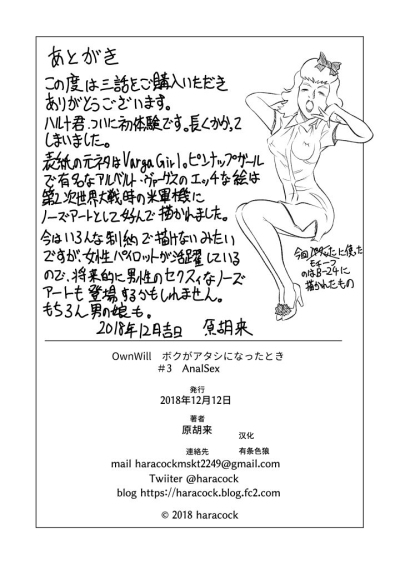 あとがき
この度は三話をご購入いただき
ありがとうございます。
ハルト君、ついに初体験です。長くかかって
しまいました。
表紙の元ネタはVarga Girl。ピンナップガール
で有名なアルベルト・ヴァーガスのエッチな絵は
第2次世界大戦時の米軍機に
ノーズアートとして好んで描かれました。
今はいろんな制約で描けないみたい
ですが、女性パイロットが活躍している
ので、将来的に男性のセクスィなノーズ
アートも登場するかもしれません。
もちろん男の娘も。
2018年12月吉日 原胡来
モチーフ
のはB-24に
描かれたもの
OwnWill ボクがアタシになったとき
#3 AnalSex
発行
2018年12月12日
著者
原胡来
汉化
連絡先 有条色狼
mail haracockmskt2249@gmail.com
Twiiter @haracock
blog https://haracock.blog.fc2.com
© 2018 haracock